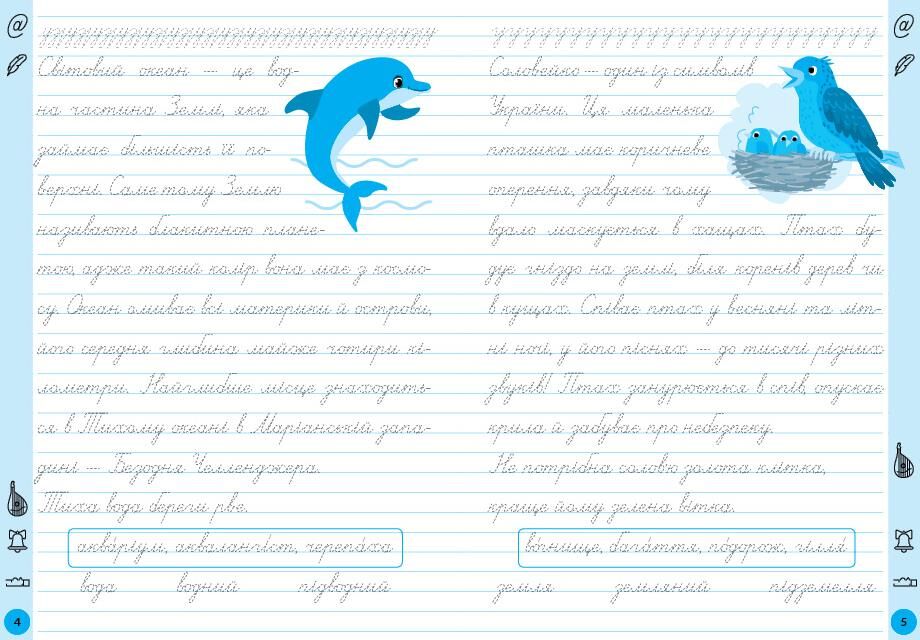 Світовий океан — це вод-
на частина Землі, яка
займає більшість її по-
верхні. Саме тому Землю
називають блакитною плане-
тою, адже такий колір вона має з космо-
су. Океан омиває всі материки й острови,
його середня глибина майже чотири кі-
лометри. Найглибше місце знаходить-
ся в Тихому океані в Маріанській запа-
дині — Безодня Челленджера.
Тиха вода береги рве.
аква́ріум, акваланги́ст, черепа́ха
вода водний підводний
4
Соловейко — один із символів
України. Ця маленька
пташка має коричневе
оперення, завдяки чому
вдало маскується в хащах. Птах бу-
дує гніздо на землі, біля коренів дерев чи
в кущах. Співає птах у весняні та літ-
ні ночі, у його піснях — до тисячі різних
звуків! Птах занурюється в спів, опускає
крила й забуває про небезпеку.
Не потрібна солов'ю золота клітка,
краще йому зелена вітка.
во́гнище, бага́ття, по́дорож, гілля́
земля земляний підземелля
5